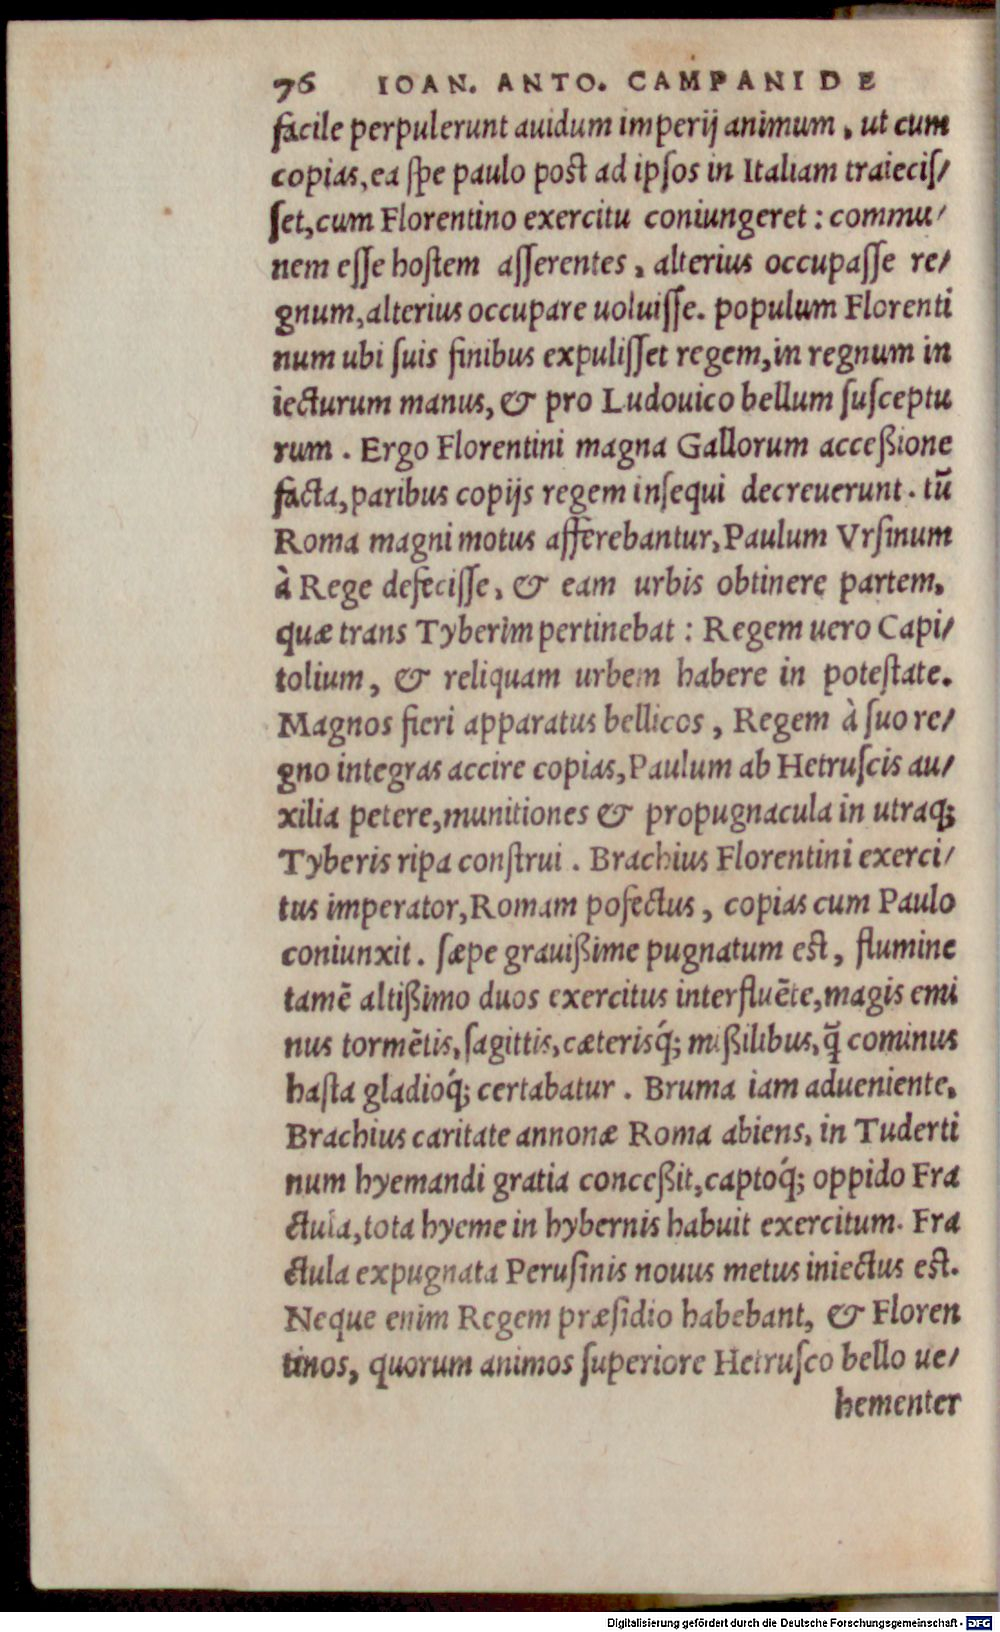 76 IOAN. ANTO. CAMPANI DE
facile perpulerunt auidum imperij animum, ut cum
copias, ea spe paulo post ad ipsos in Italiam traiecis/
set, cum Florentino exercitu coniungeret: commu/
nem esse hostem asserentes, alterius occupasse re/
gnum, alterius occupare uoluisse. populum Florenti
num ubi suis finibus expulisset regem, in regnum in
iecturum manus, & pro Ludouico bellum susceptu
rum. Ergo Florentini magna Gallorum acceßione
facta, paribus copijs regem insequi decreuerunt. tū
Roma magni motus afferebantur, Paulum Vrsinum
à Rege defecisse, & eam urbis obtinere partem,
quæ trans Tyberim pertinebat: Regem uero Capi/
tolium, & reliquam urbem habere in potestate.
Magnos fieri apparatus bellicos, Regem à suo re/
gno integras accire copias, Paulum ab Hetruscis au/
xilia petere, munitiones & propugnacula in utraq;
Tyberis ripa construi. Brachius Florentini exerci/
tus imperator, Romam pofectus, copias cum Paulo
coniunxit. sæpe grauißime pugnatum est, flumine
tamē altißimo duos exercitus interfluēte, magis emi
nus tormētis, sagittis, cæterisq́; mißilibus, q̄ cominus
hasta gladioq́; certabatur. Bruma iam adueniente,
Brachius caritate annonæ Roma abiens, in Tuderti
num hyemandi gratia conceßit, captoq́; oppido Fra
ctula, tota hyeme in hybernis habuit exercitum. Fra
ctula expugnata Perusinis nouus metus iniectus est.
Neque enim Regem præsidio habebant, & Floren
tinos, quorum animos superiore Hetrusco bello ue/
hementer
Digitalisierung gefördert durch die Deutsche Forschungsgemeinschaft - DFG